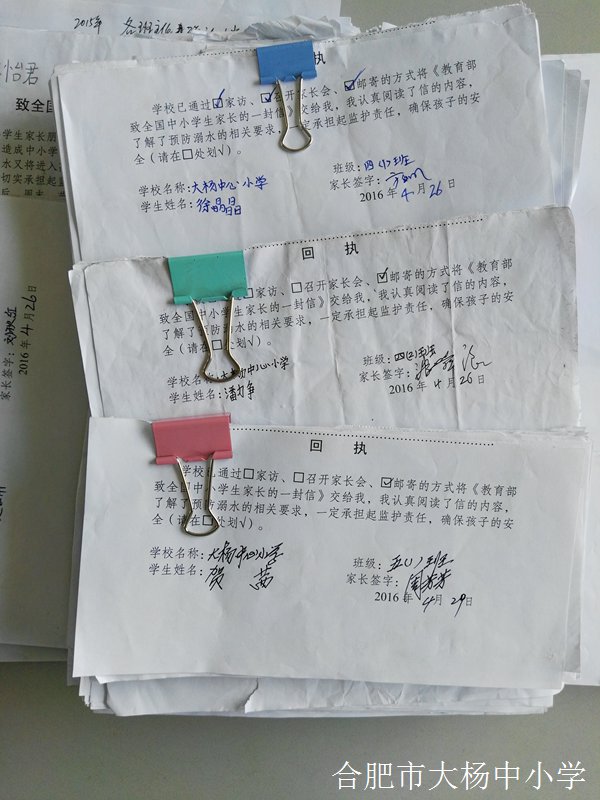 2015年
怡君
致全国
学生家长朋
造成中小学
水又将进入
切实承担起
家长签字：
2016 年 4 月 26 日
执
学校已通过☑家访、☑召开家长会、☑邮寄的方式将《教育部
致全国中小学生家长的一封信》交给我，我认真阅读了信的内容，
了解了预防溺水的相关要求，一定承担起监护责任，确保孩子的安
全（请在□处划√）。
学校名称：大杨中心小学
班级：四（1）班
学生姓名：徐晶晶
家长签字：
2016 年 4 月 26 日
回 执
□家访、□召开家长会、☑邮寄的方式将《教育部
致全国中小学生家长的一封信》交给我，我认真阅读了信的内容，
了解了预防溺水的相关要求，一定承担起监护责任，确保孩子的安
全（请在□处划√）。
学校名称：大杨中心小学
班级：四（2）班
学生姓名：潘力争
家长签字：
2016 年 4 月 26 日
回 执
学校已通过□家访、□召开家长会、☑邮寄的方式将《教育部
致全国中小学生家长的一封信》交给我，我认真阅读了信的内容，
了解了预防溺水的相关要求，一定承担起监护责任，确保孩子的安
全（请在□处划√）。
学校名称：大杨中心小学
班级：五（1）班
学生姓名：贺 茜
家长签字：周芳芳
2016 年 4 月 29 日
合肥市大杨中小学